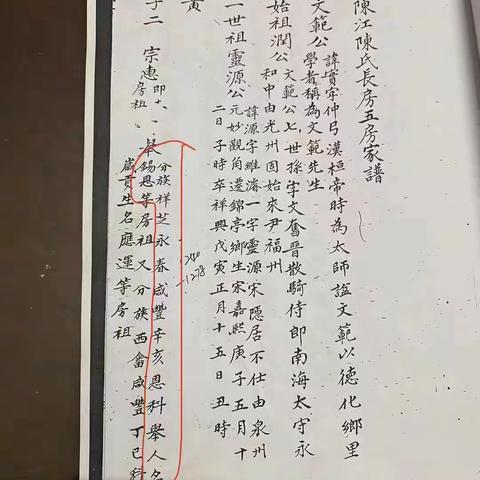 陳江陳氏長房五房家譜
文範公
諱寔字仲弓漢桓帝時為太師諡文範以德化鄉里
學者稱為文範先生
始祖潤公
文範公七世孫字文奮晉散騎侍郎南海太守永
和中由光州固始來尹福州
一世祖靈源公
諱源字維濬一字靈源宋隱居不仕由泉州
元妙觀角遷錦亭鄉生宋嘉熙庚子五月十
二日子時卒祥興戊寅正月十五日丑時
1240
-1278
子二
宗惠
即十
房祖
分族祥芝永春咸豐辛亥恩科舉人名
錫恩等房祖又分族西畲咸豐丁巳科
歲貢生名應運等房祖